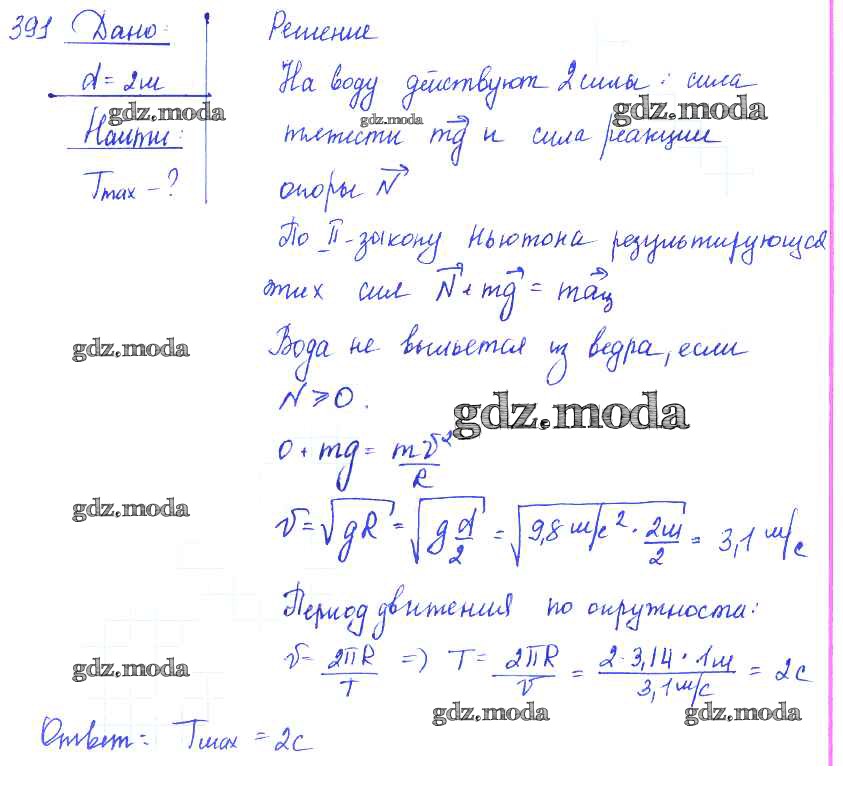 391 Дано:
d = 2м
Найти:
Tmax - ?
Решение
На воду действуют 2 силы: сила
тяжести mg⃗ и сила реакции
опоры N⃗
По II-закону Ньютона результирующая
этих сил N⃗ + mg⃗ = ma⃗ц
Вода не выльется из ведра, если
N ⩾ 0.
0 + mg = mv²/R
v = √gR = √(g d/2) = √(9,8 м/с² · 2м/2) = 3,1 м/с
Период движения по окружности:
v = 2πR/T => T = 2πR/v = 2·3,14·1м/3,1 м/с = 2с
Ответ: Tmax = 2с
gdz.moda
gdz.moda
gdz.moda
gdz.moda
gdz.moda
gdz.moda
gdz.moda
gdz.moda
gdz.moda